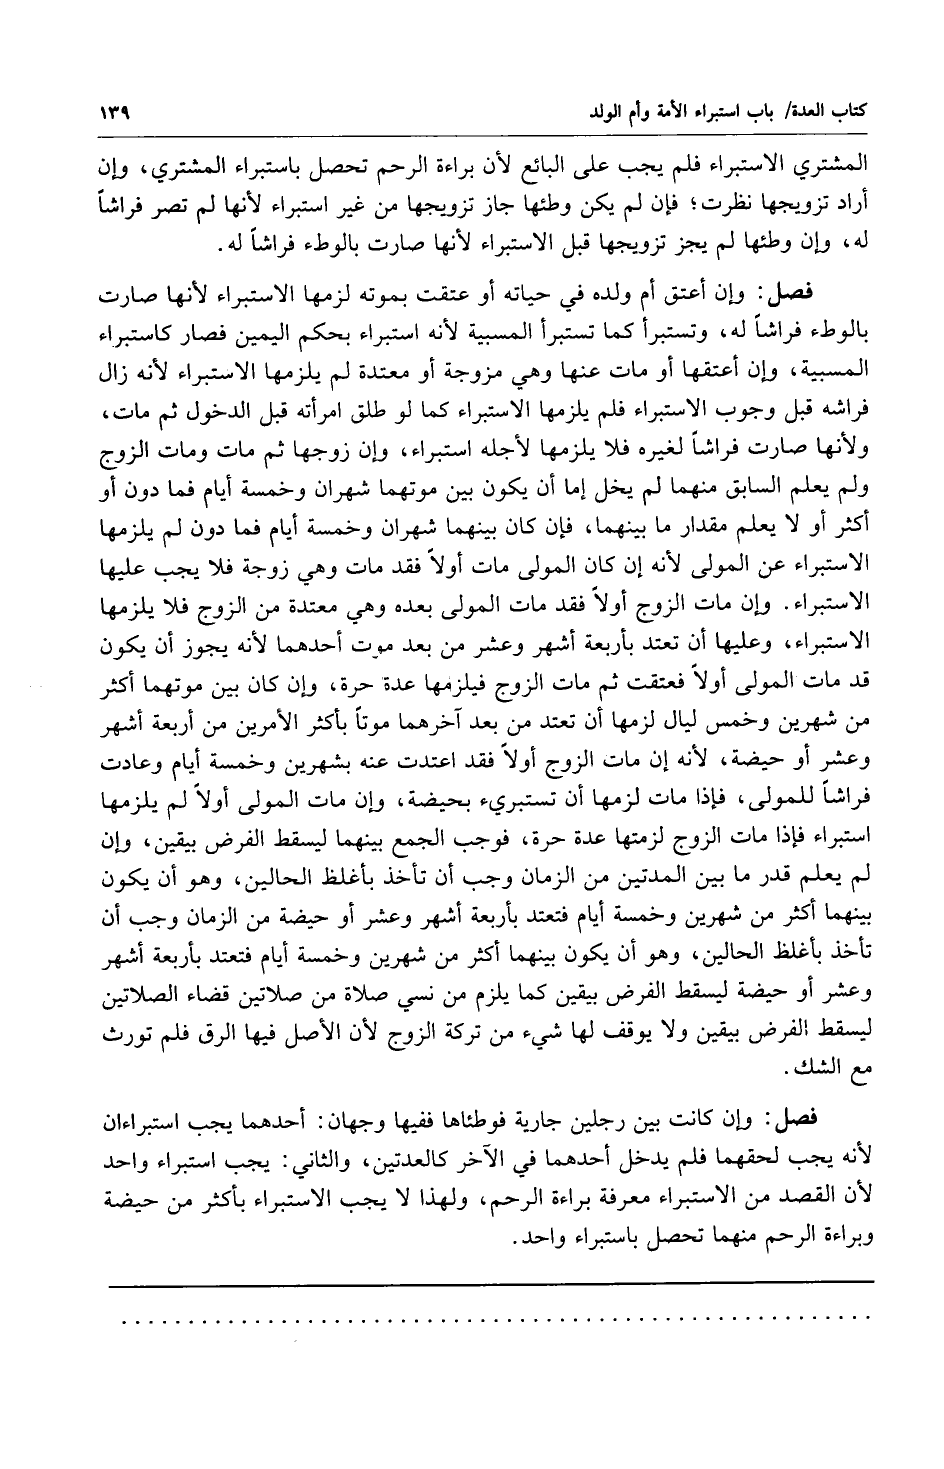 كتاب العدة/ باب استبراء الأمة وأم الولد ١٣٩
المشتري الاستبراء فلم يجب على البائع لأن براءة الرحم تحصل باستبراء المشتري، وإن
أراد تزويجها نظرت؛ فإن لم يكن وطئها جاز تزويجها من غير استبراء لأنها لم تصر فراشاً
له، وإن وطئها لم يجز تزويجها قبل الاستبراء لأنها صارت بالوطء فراشاً له.
فصل: وإن أعتق أم ولده في حياته أو عتقت بموته لزمها الاستبراء لأنها صارت
بالوطء فراشاً له، وتستبرأ كما تستبرأ المسبية لأنه استبراء بحكم اليمين فصار كاستبراء
المسبية، وإن أعتقها أو مات عنها وهي مزوجة أو معتدة لم يلزمها الاستبراء لأنه زال
فراشه قبل وجوب الاستبراء فلم يلزمها الاستبراء كما لو طلق امرأته قبل الدخول ثم مات،
ولأنها صارت فراشاً لغيره فلا يلزمها لأجله استبراء، وإن زوجها ثم مات ومات الزوج
ولم يعلم السابق منهما لم يخل إما أن يكون بين موتهما شهران وخمسة أيام فما دون أو
أكثر أو لا يعلم مقدار ما بينهما، فإن كان بينهما شهران وخمسة أيام فما دون لم يلزمها
الاستبراء عن المولى لأنه إن كان المولى مات أولاً فقد مات وهي زوجة فلا يجب عليها
الاستبراء. وإن مات الزوج أولاً فقد مات المولى بعده وهي معتدة من الزوج فلا يلزمها
الاستبراء، وعليها أن تعتد بأربعة أشهر وعشر من بعد موت أحدهما لأنه يجوز أن يكون
قد مات المولى أولاً فعتقت ثم مات الزوج فيلزمها عدة حرة، وإن كان بين موتهما أكثر
من شهرين وخمس ليال لزمها أن تعتد من بعد آخرهما موتاً بأكثر الأمرين من أربعة أشهر
وعشر أو حيضة، لأنه إن مات الزوج أولاً فقد اعتدت عنه بشهرين وخمسة أيام وعادت
فراشاً للمولى، فإذا مات لزمها أن تستبريء بحيضة، وإن مات المولى أولاً لم يلزمها
استبراء فإذا مات الزوج لزمتها عدة حرة، فوجب الجمع بينهما ليسقط الفرض بيقين، وإن
لم يعلم قدر ما بين المدتين من الزمان وجب أن تأخذ بأغلظ الحالين، وهو أن يكون
بينهما أكثر من شهرين وخمسة أيام فتعتد بأربعة أشهر وعشر أو حيضة من الزمان وجب أن
تأخذ بأغلظ الحالين، وهو أن يكون بينهما أكثر من شهرين وخمسة أيام فتعتد بأربعة أشهر
وعشر أو حيضة ليسقط الفرض بيقين كما يلزم من نسي صلاة من صلاتين قضاء الصلاتين
ليسقط الفرض بيقين ولا يوقف لها شيء من تركة الزوج لأن الأصل فيها الرق فلم تورث
مع الشك.
فصل: وإن كانت بين رجلين جارية فوطئاها ففيها وجهان: أحدهما يجب استبراءان
لأنه يجب لحقهما فلم يدخل أحدهما في الآخر كالعدتين، والثاني: يجب استبراء واحد
لأن القصد من الاستبراء معرفة براءة الرحم، ولهذا لا يجب الاستبراء بأكثر من حيضة
وبراءة الرحم منهما تحصل باستبراء واحد.